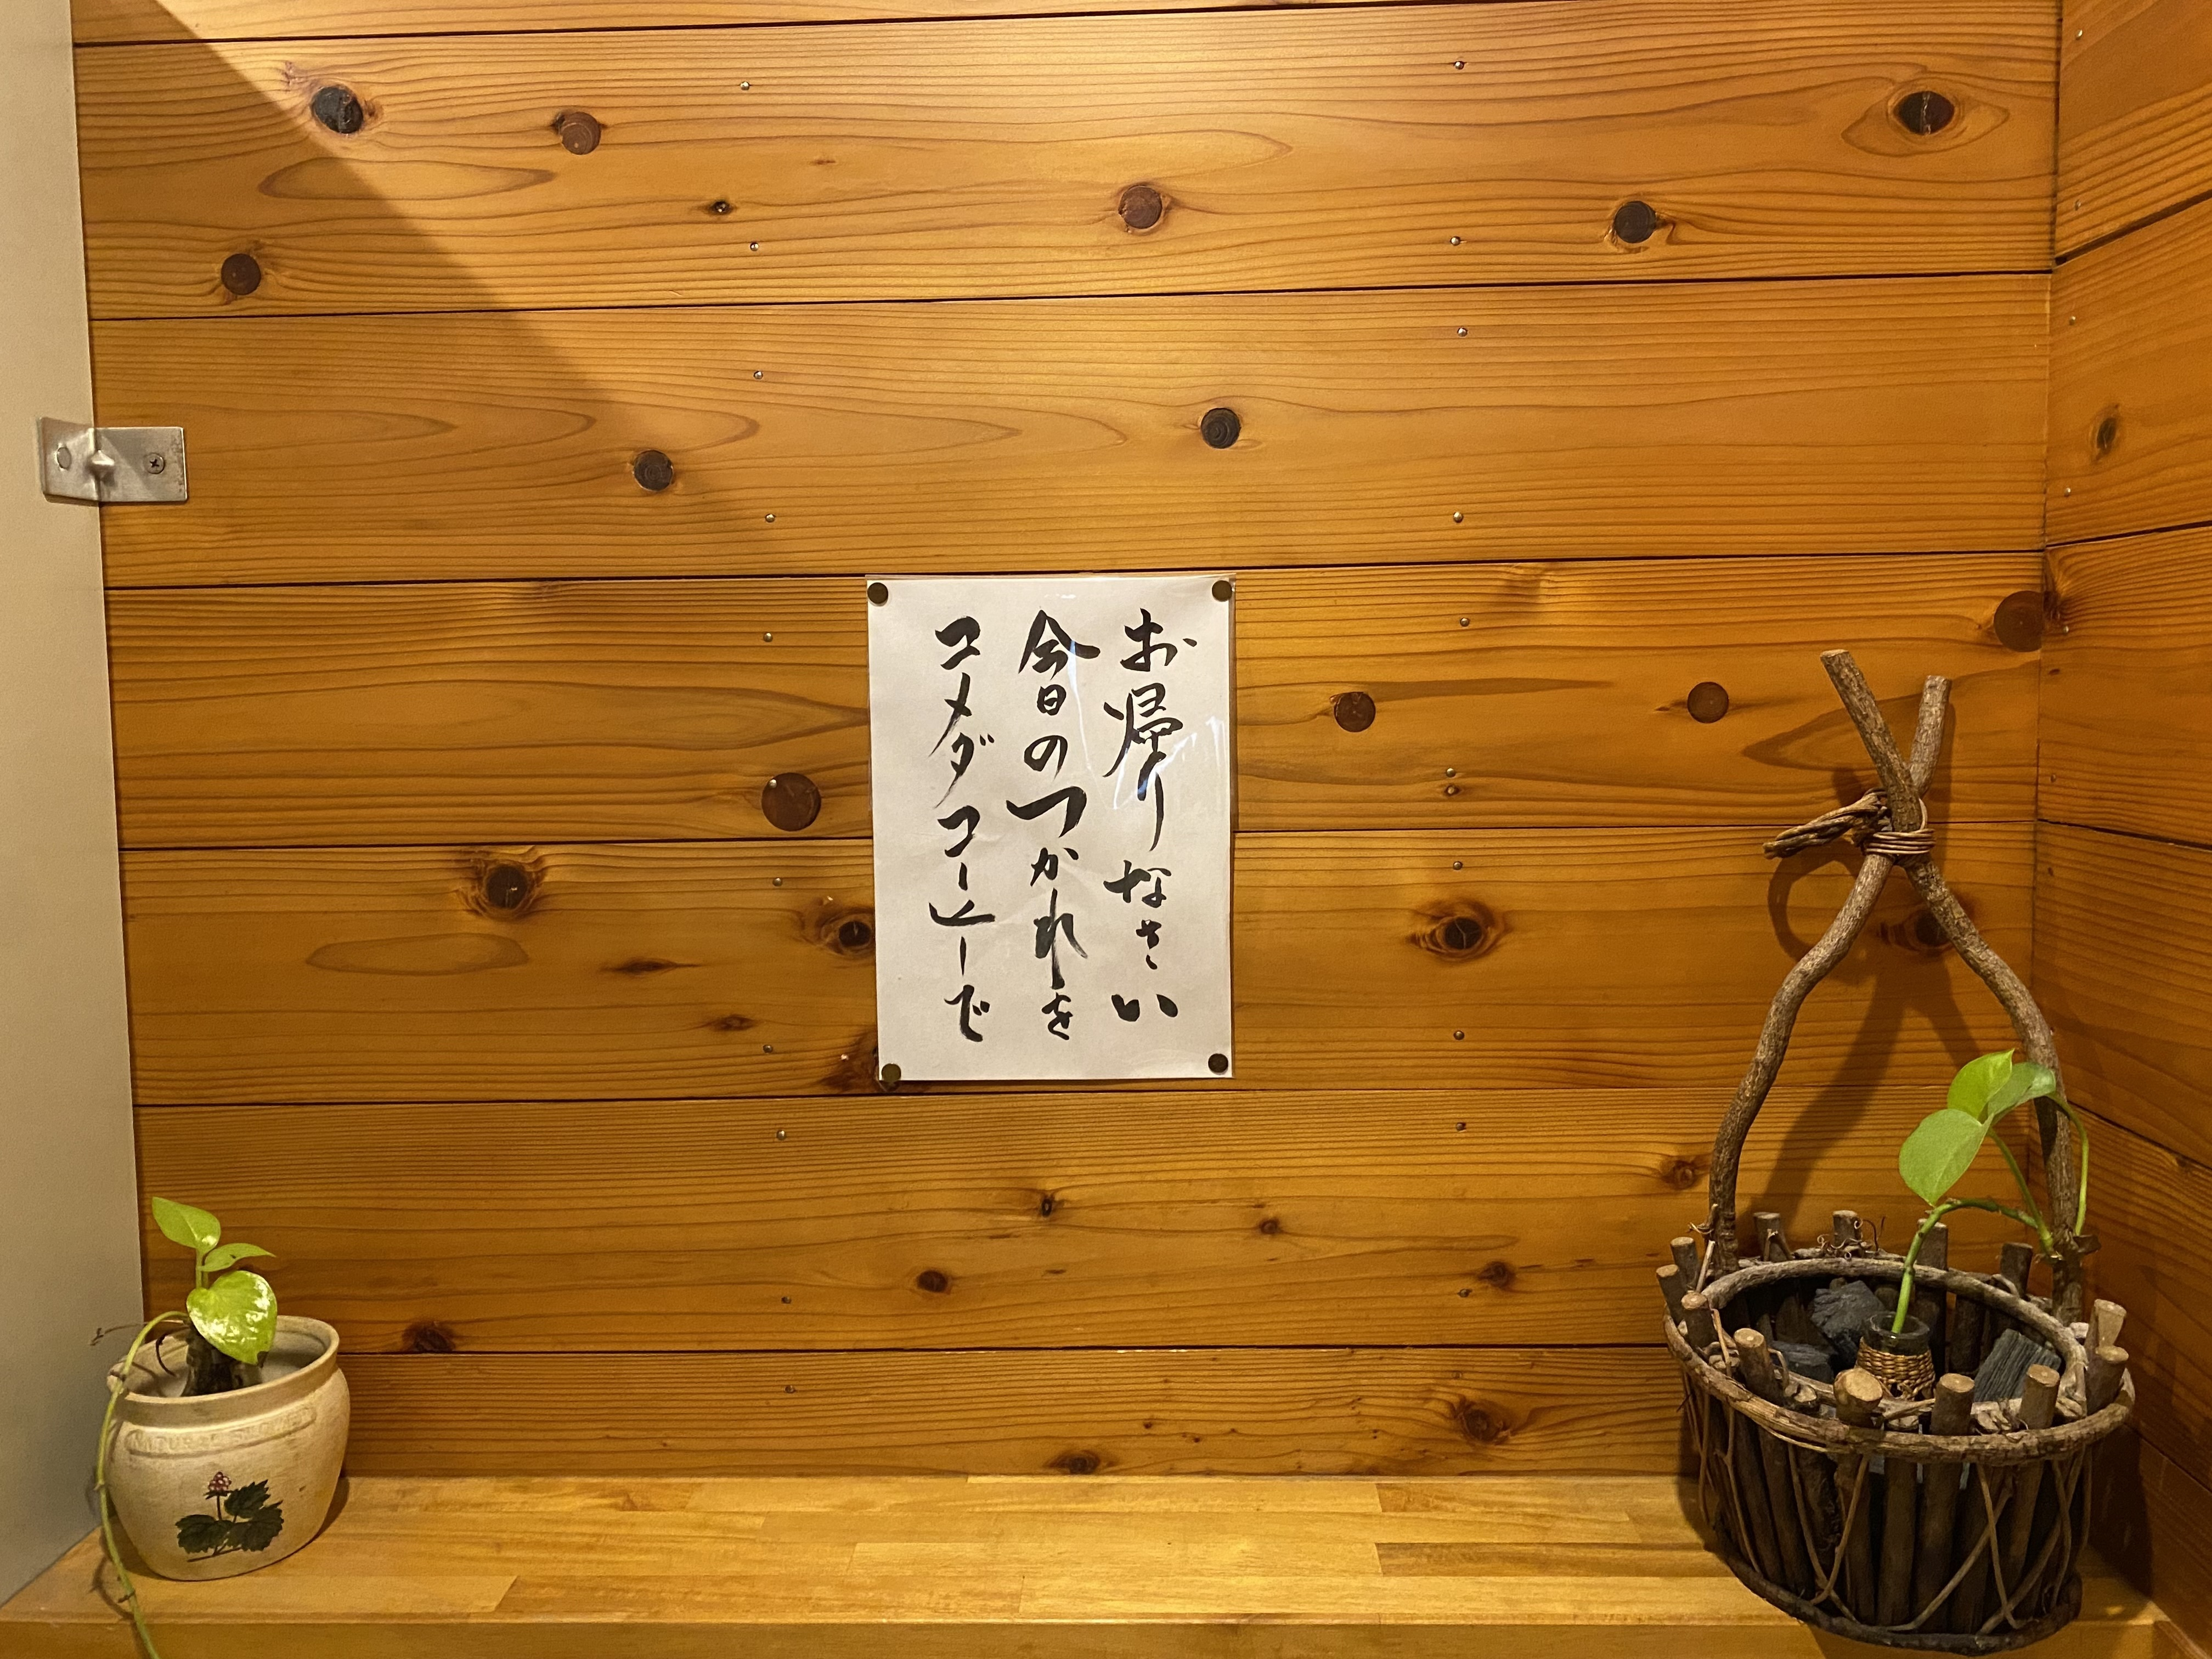 お帰りなさい
今日のつかれを
コメダコーヒーで
NATURAL